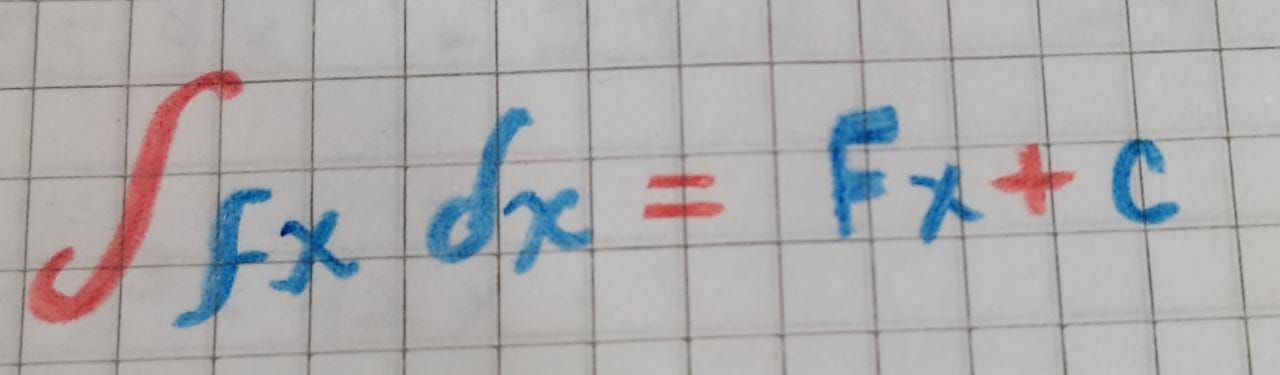 ∫ fx dx = Fx + C